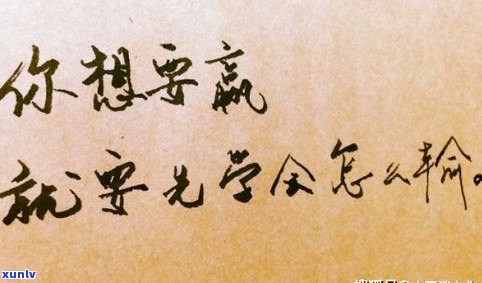 你想要赢
就要先学会怎么输。
xunlv